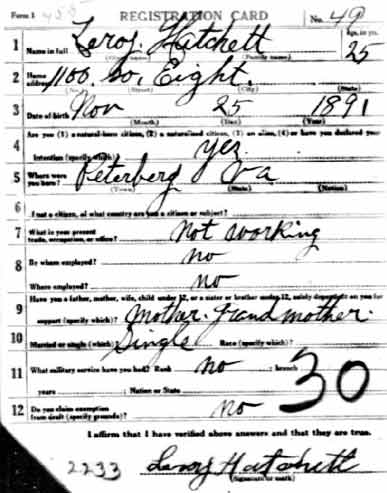 Form 1 REGISTRATION CARD No. 49
1 Leroy Hatchett 25
Name in full (Given name) (Family name) Age, in yrs.
2 Home address 1100. So, Eight.
(No.) (Street) (City) (State)
3 Date of birth Nov 25 1891
(Month) (Day) (Year)
4 Are you (1) a natural-born citizen, (2) a naturalized citizen, (3) an alien, (4) or have you declared your
intention (specify which)? yes
5 Where were you born? Peterberg Va
(Town) (State) (Nation)
6 If not a citizen, of what country are you a citizen or subject?
7 What is your present trade, occupation, or office? Not working
8 By whom employed? no
Where employed? no
9 Have you a father, mother, wife, child under 12, or a sister or brother under 12, solely dependent on you for
support (specify which)? Mother. Grand mother.
10 Married or single (which)? Single Race (specify which)?
11 What military service have you had? Rank no ; branch 30
years ; Nation or State
12 Do you claim exemption from draft (specify grounds)? no
I affirm that I have verified above answers and that they are true.
2233 Leroy Hatchett
(Signature or mark)